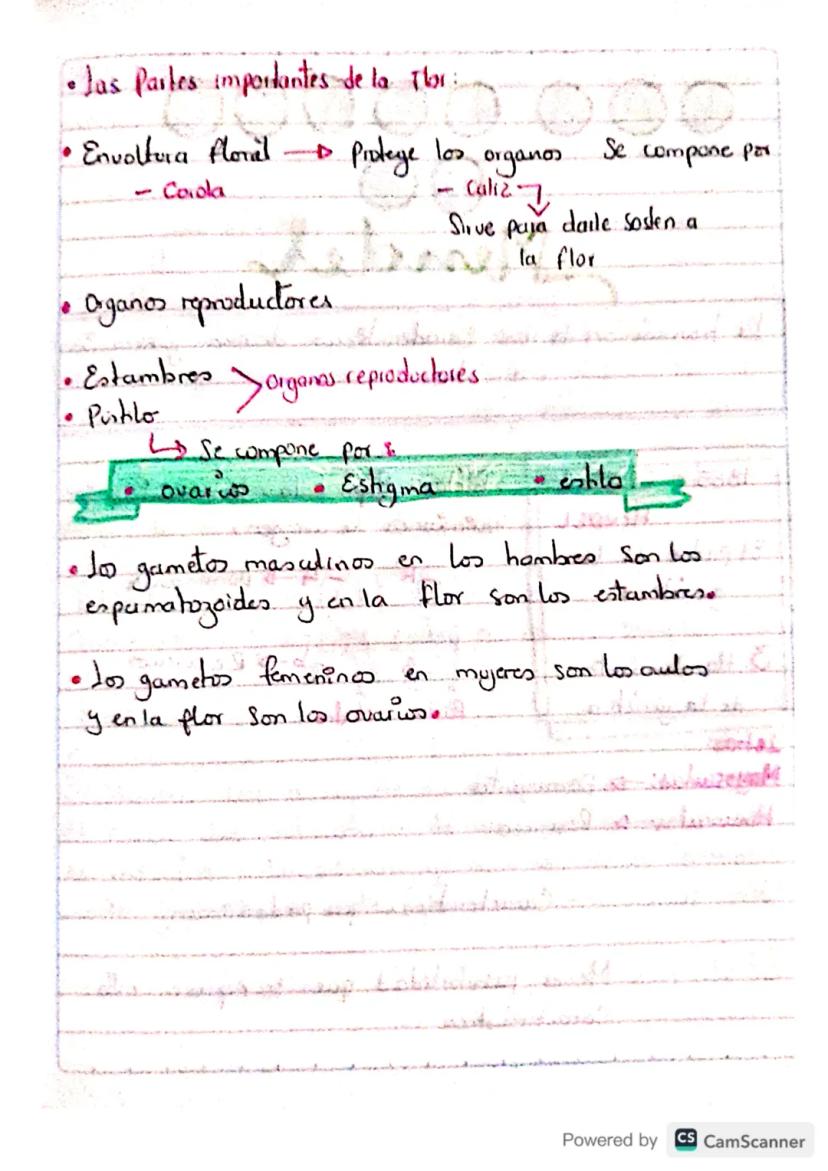 • Las Partes importantes de la Flor:
• Envoltura floral → Protege los organos Se compone por
– Corola – Caliz
Sirve para darle sosten a
la flor
• Organos reproductores
• Estambres > Organos reproductores
• Pistilo
↳ Se compone por :
• ovarios • Estigma • estilo
• Los gametos masculinos en los hombres son los
espermatozoides y en la flor son los estambres.
• Los gametos femeninos en mujeres son los
y en la flor son los ovarios.
Powered by CS CamScanner